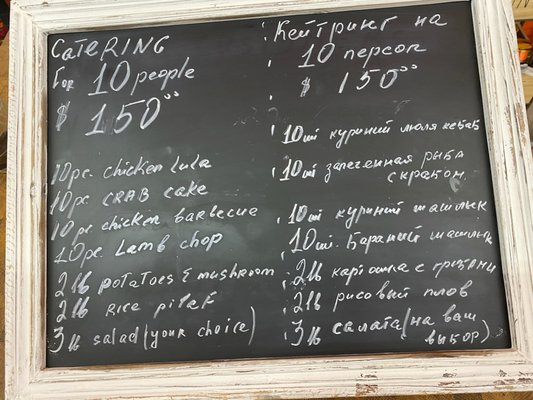 CateRING
FOR 10 people
$ 150⁰⁰
10 pc. chicken Lula
10 pc. CRAB cake
10 pc chicken baRbecue
10 pc. Lamb chop
2 lb potatoes & mushroom
2 lb Rice pilaf
3 lb salad (your choice)
Кейтринг на
10 персон
$ 150⁰⁰
10 шт куриний люля кебаб
10 шт запеченная рыба
с крабом.
10 шт куриний шашлык
10 шт. Бараний шашлык
2 lb картошка с грибами
2 lb рисовый плов
3 lb салата (на ваш
выбор)